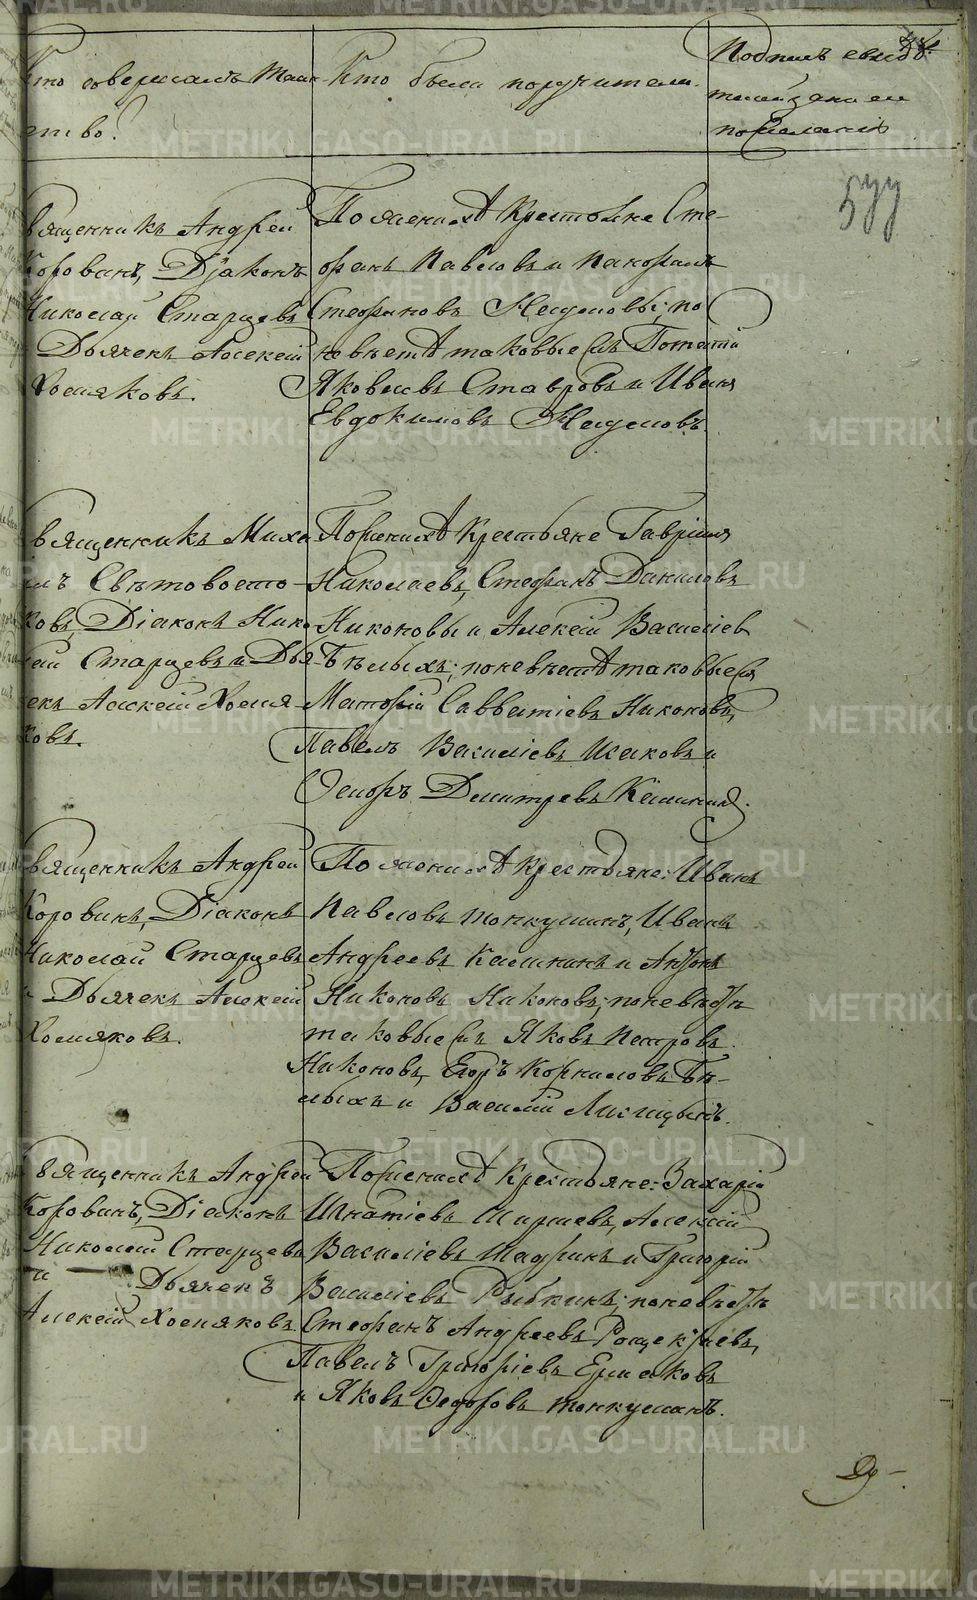 Кто совершалъ Таин-
ство?
Кто были поручители.
Подпись свидѣ-
телей записи
по желанію
577
Священникъ Андрей
Коровинъ, Діаконъ
Николай Старцевъ
Дьячекъ Алексій
Хомяковъ.
По женихѣ крестьяне Сте-
фанъ Павловъ и Панфилъ
Стефановъ; по
невѣстѣ таковые съ Потапій
Яковлевъ и Иванъ
Евдокимовъ
Священникъ Миха-
илъ Свѣтовосто-
ковъ, Діаконъ Нико-
лай Старцевъ и Дья-
чекъ Алексій Хомя-
ковъ.
По женихѣ крестьяне Гавріилъ
Николаевъ, Стефанъ Даниловъ
Никоновы и Алексій Василіевъ
Бѣлыхъ; по невѣстѣ таковые съ
Савватіевъ Никоновъ,
Павелъ Василіевъ Исаковъ и
Ѳедоръ Дмитревъ Калининъ.
Священникъ Андрей
Коровинъ, Діаконъ
Николай Старцевъ
и Дьячекъ Алексій
Хомяковъ.
По женихѣ крестьяне: Иванъ
Павловъ Тонкушинъ, Иванъ
Андреевъ Калининъ и Антонъ
Никоновъ Никоновъ; по невѣстѣ
таковые съ Яковъ Петровъ
Никоновъ, Егоръ Корниловъ Бѣ-
лыхъ и Василій Лисицынъ.
Священникъ Андрей
Коровинъ, Діаконъ
Николай Старцевъ
и Дьячекъ
Алексій Хомяковъ.
По женихѣ крестьяне: Захарій
Игнатіевъ Ширшевъ, Алексій
Василіевъ Шадринъ и Григорій
Василіевъ Рыбкинъ; по невѣстѣ
Стефанъ Андреевъ
Павелъ Григоріевъ Ермаковъ
и Яковъ Ѳедоровъ Тонкушинъ.